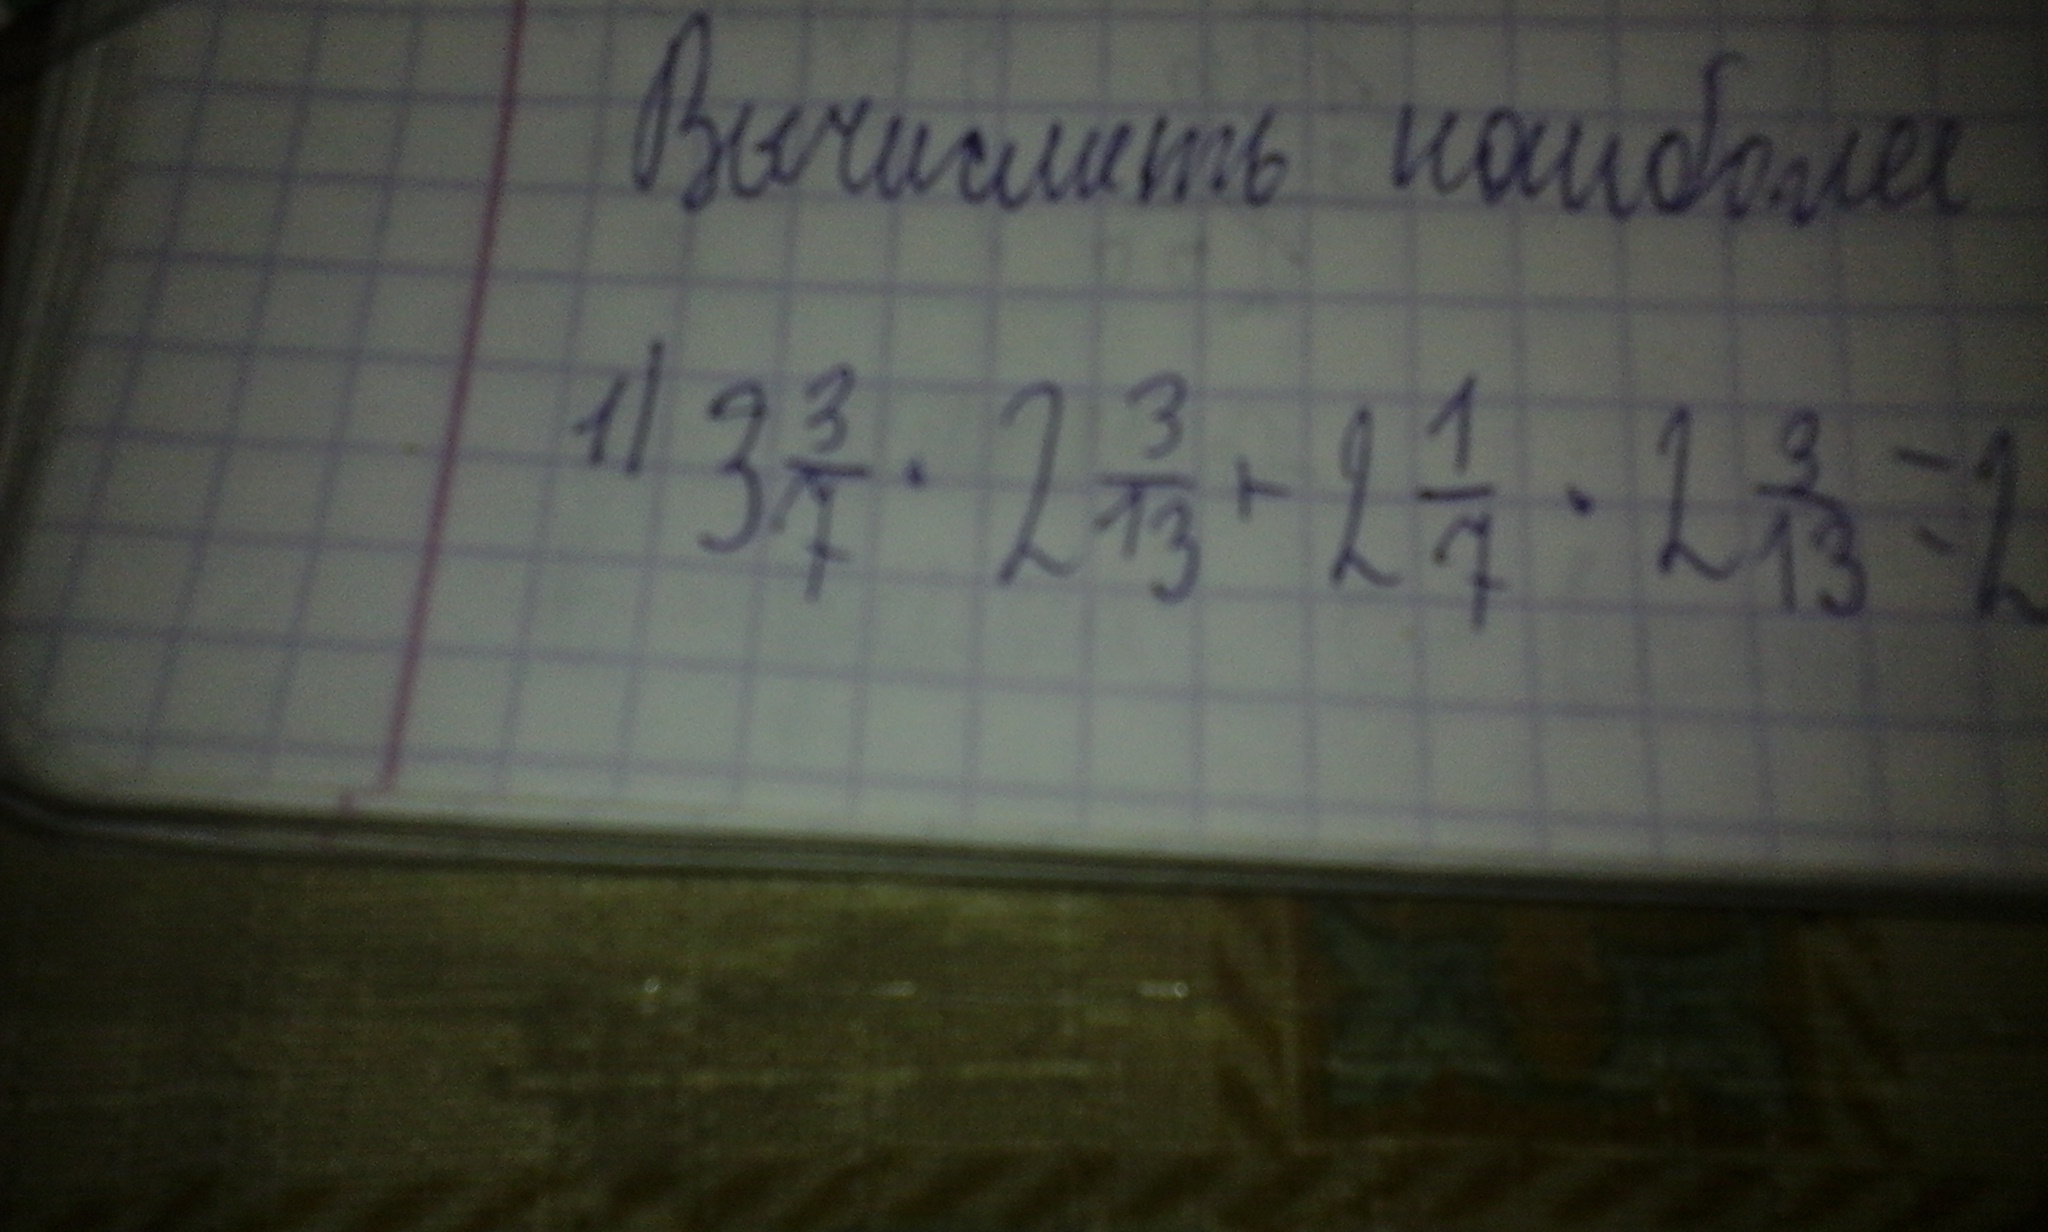 Вычислить наиболее
1) 3 3/7 · 2 3/13 + 2 1/7 · 2 3/13 = 2